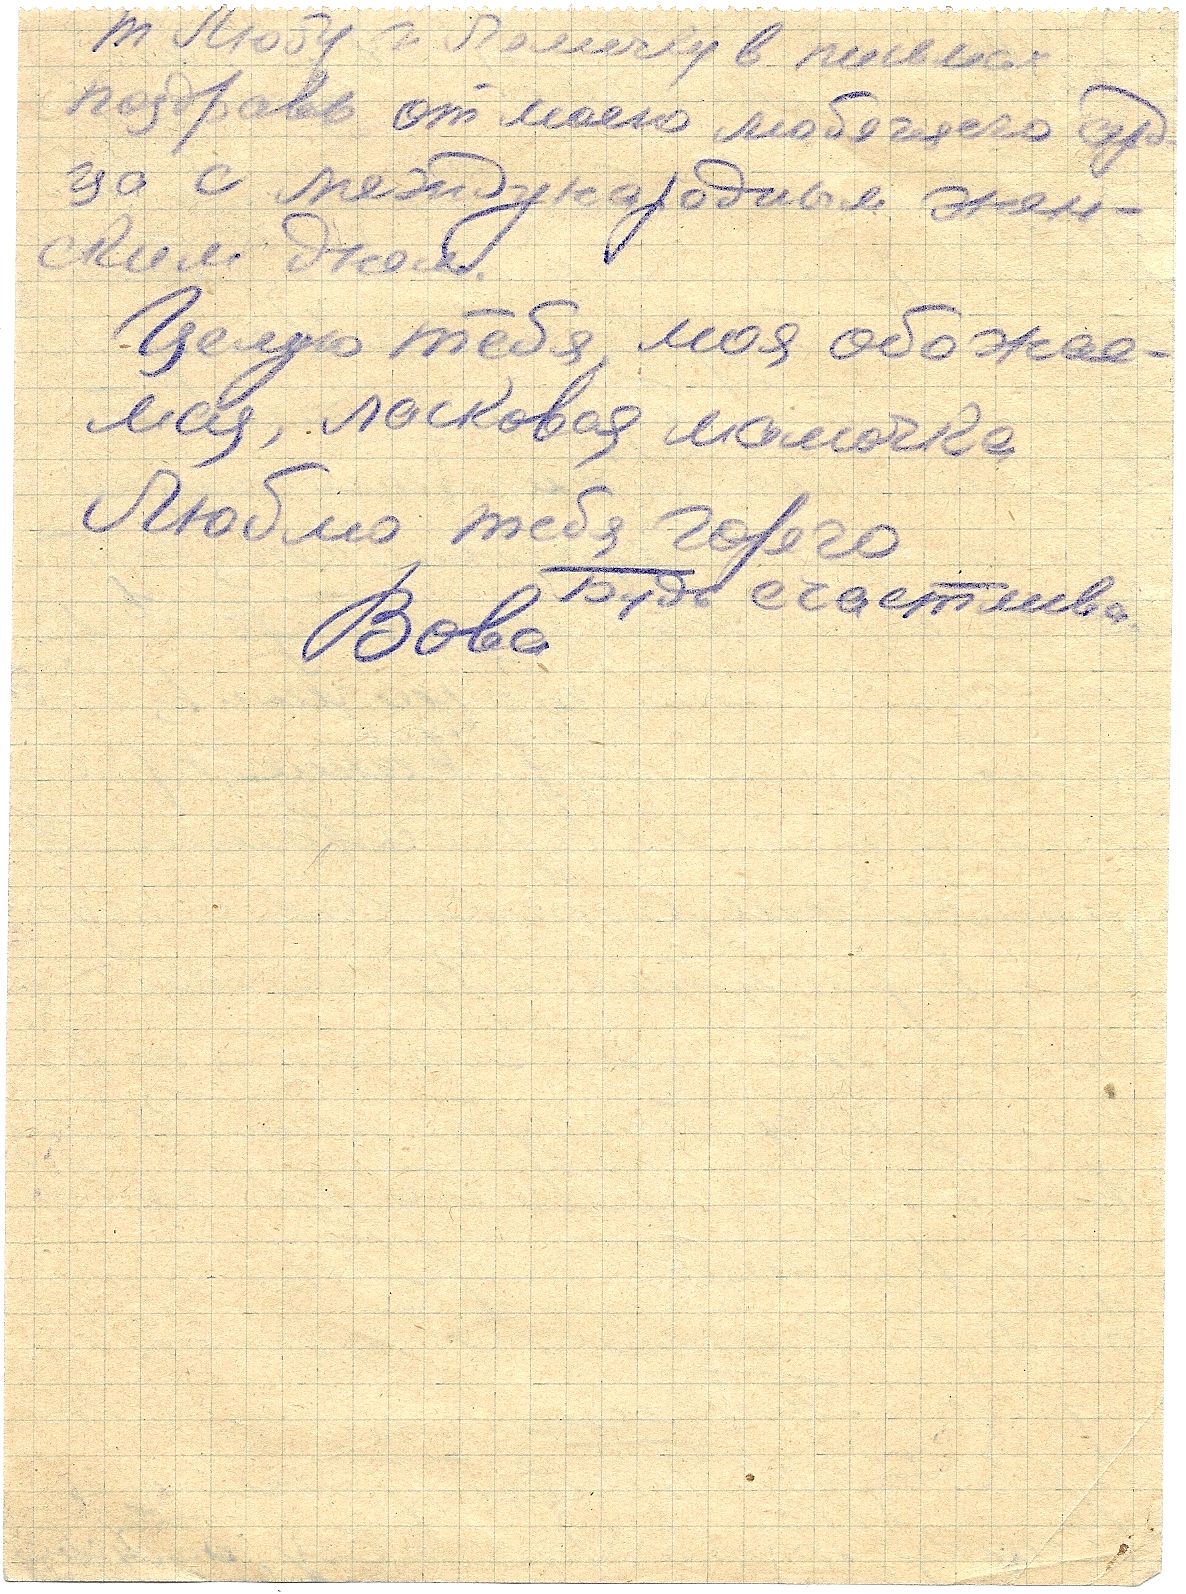 т Любу и Лялечку в письмах
поздравь от моего любящего серд-
ца с международным жен-
ским днем.
Целую тебя, моя обожае-
мая, ласковая мамочка
Люблю тебя горячо
Будь счастлива.
Вова